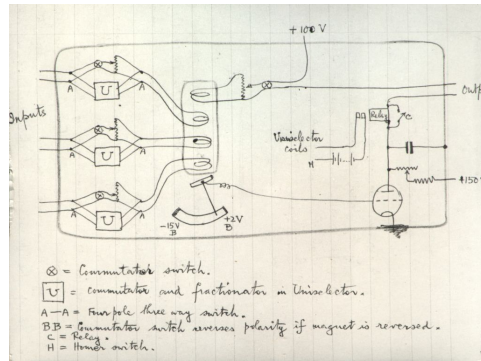 +100 V
Inputs
A
U
A
A
U
A
A
U
A
Relay
C
Uniselector
coils
H
+150
-15V
B
+2V
B
⊗ = Commutator switch.
U = commutator and fractionator in Uniselector.
A—A = Four pole three way switch.
B.B = Commutator switch reverses polarity if magnet is reversed.
C = Relay.
H = Homer switch.